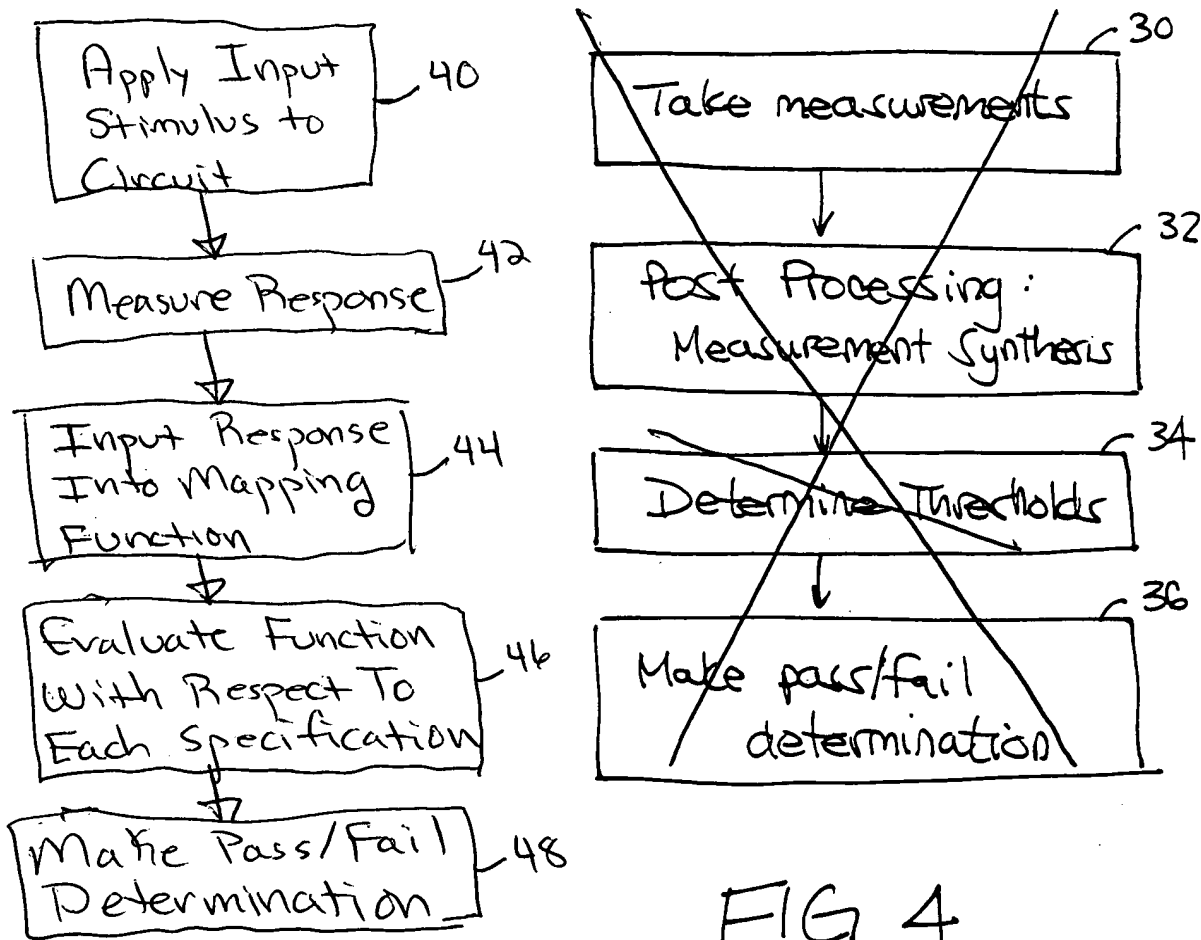 Apply Input
Stimulus to
Circuit
40
Measure Response
42
Input Response
Into Mapping
Function
44
Evaluate Function
With Respect To
Each Specification
46
Make Pass/Fail
Determination
48
30
Take measurements
32
Post Processing:
Measurement Synthesis
34
Determine Thresholds
36
Make pass/fail
determination
FIG 4